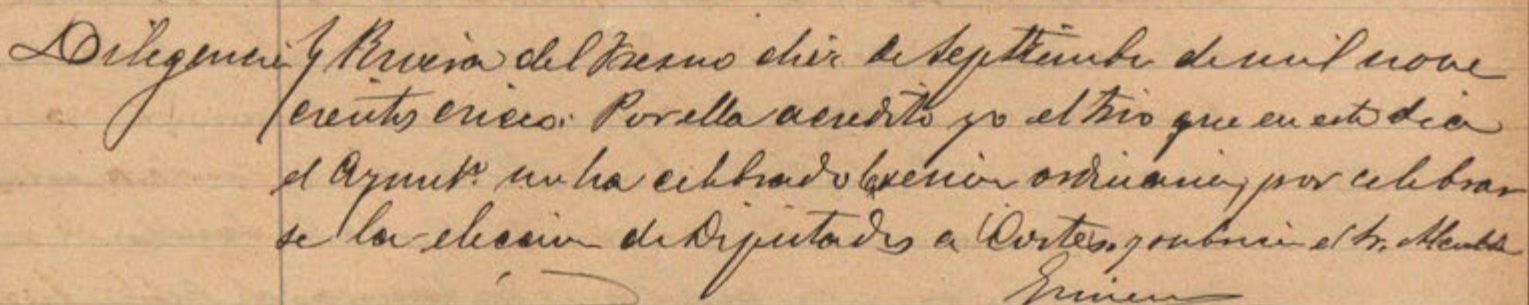 Diligencia} Rivera del Fresno diez de Septtiembre de mil nove
cientos cinco: Por ella acredito yo el Srio que en este dia
el Ayuntº no ha celebrado sesion ordinaria, por celebrar
se la eleccion de Diputados a Cortes, el Sr. Alcalde